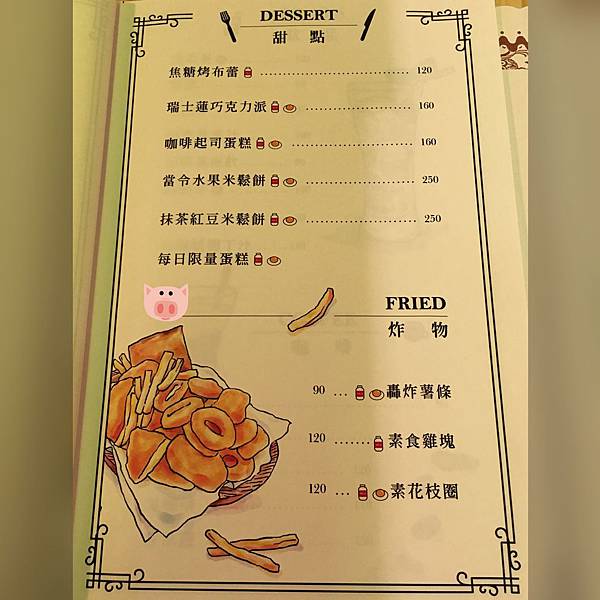 DESSERT
甜 點
焦糖烤布蕾 ........................ 120
瑞士蓮巧克力派 ........................ 160
咖啡起司蛋糕 ........................ 160
當令水果米鬆餅 ........................ 250
抹茶紅豆米鬆餅 ........................ 250
每日限量蛋糕
FRIED
炸 物
90 ... 轟炸薯條
120 ....... 素食雞塊
120 ... 素花枝圈